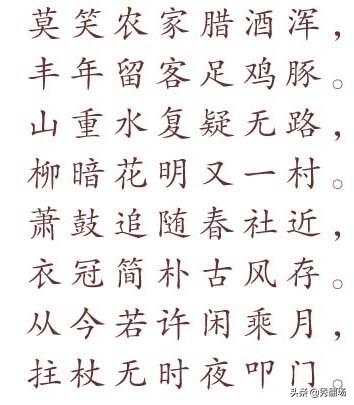 莫笑农家腊酒浑，
丰年留客足鸡豚。
山重水复疑无路，
柳暗花明又一村。
萧鼓追随春社近，
衣冠简朴古风存。
从今若许闲乘月，
拄杖无时夜叩门。
头条@秀翩场